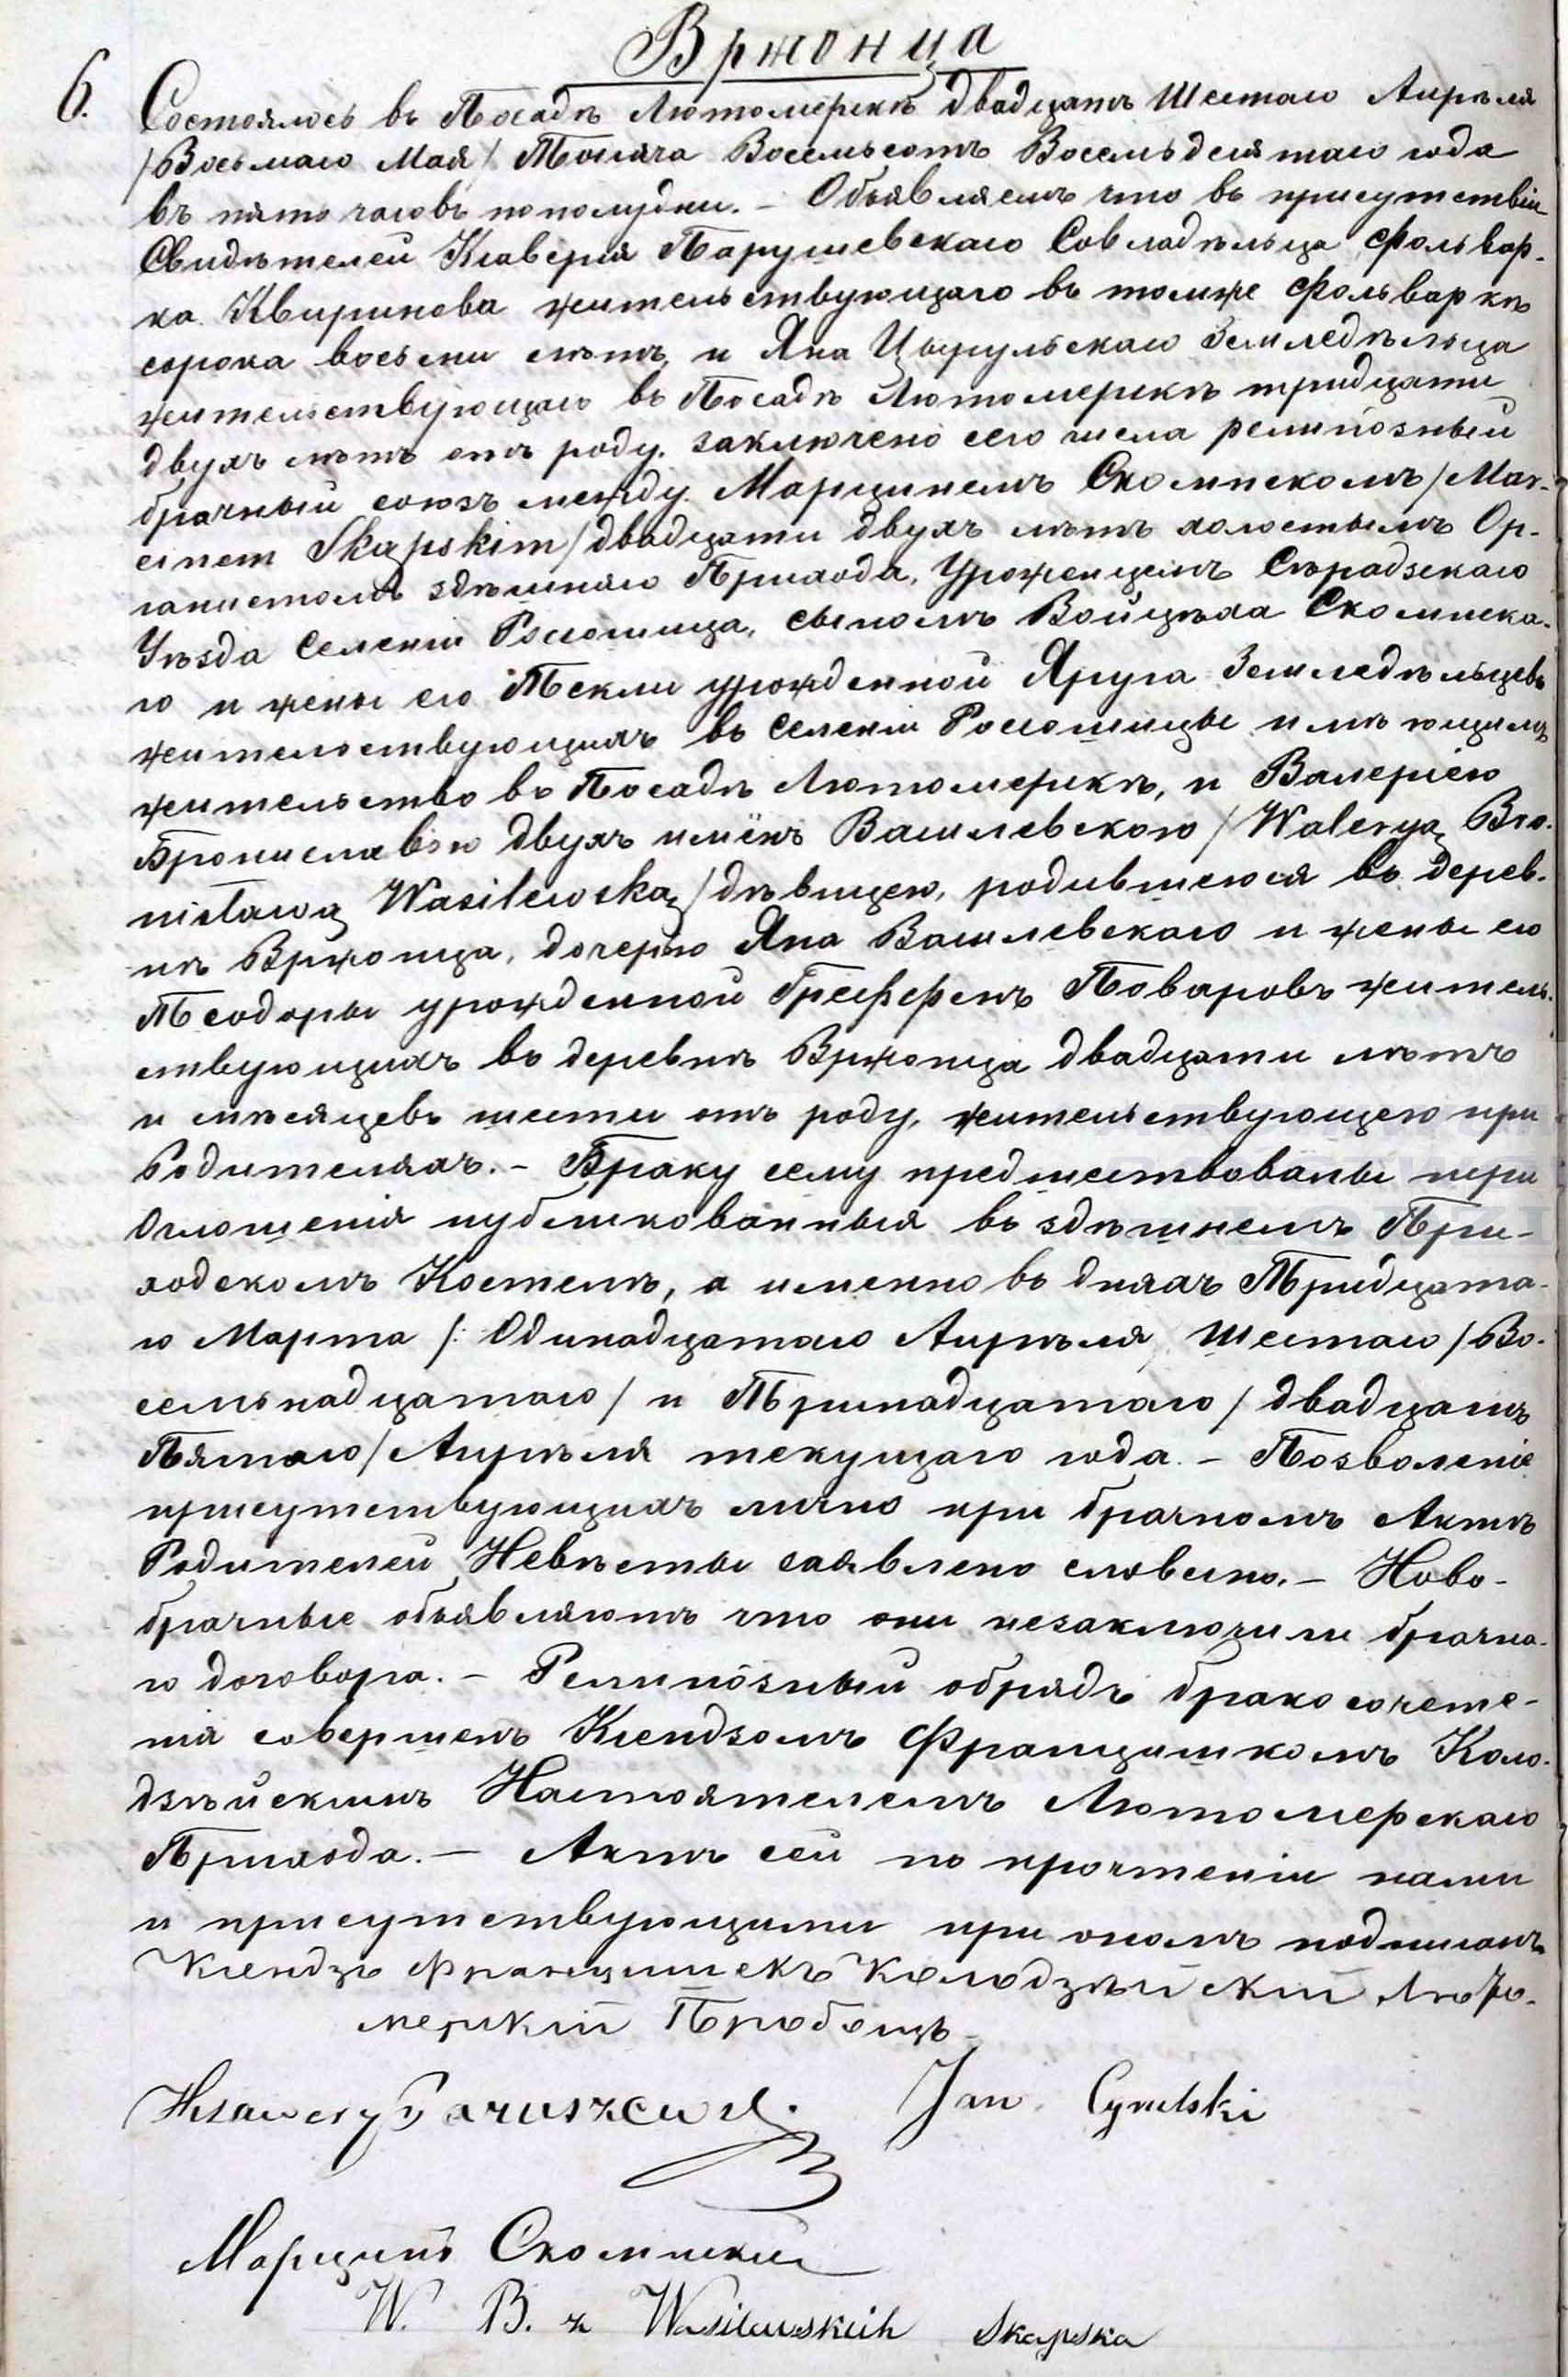 Вржонца
6. Состоялось въ Посадѣ Лютомерскѣ двадцать Шестаго Апрѣля
/Восьмаго Мая/ Тысяча Восемьсотъ Восемьдесятаго года
въ пять часовъ пополудни. – Объявляемъ что въ присутствіи
Свидѣтелей Ксаверія Парушевскаго Совладѣльца Фольвар-
ка Квиринова жительствующаго въ томже Фольваркѣ
сорока восьми лѣтъ, и Яна Цырульскаго Земледѣльца
жительствующаго въ Посадѣ Лютомерскѣ тридцати
двухъ лѣтъ отъ роду, заключено сего числа религіозный
брачный союзъ между Марцинемъ Скомпскомъ /Mar-
cinem Skąpskim/ двадцати двухъ лѣтъ холостымъ Ор-
ганистомъ здѣшняго Прихода, Уроженцемъ Сѣрадзскаго
Уѣзда Селенія Россошица, сыномъ Войцѣха Скомпска-
го и жены его Текли урожденной Яруга Земледѣльцевъ
жительствующихъ въ Селеніи Россошицы имѣющимъ
жительство въ Посадѣ Лютомерскѣ, и Валеріею
Брониславою двухъ имёнъ Василевскою /Waleryą Bro-
nisławą Wasilewską/ дѣвицею, родившеюся въ дерев-
нѣ Вржонца, дочерью Яна Василевскаго и жены его
Теодоры урожденной Греффенъ Поваровъ житель-
ствующихъ въ деревнѣ Вржонца двадцати лѣтъ
и мѣсяцевъ шести отъ роду, жительствующею при
Родителяхъ. – Браку сему предшествованы три
Оглошенія публикованныя въ здѣшнемъ При-
ходскомъ Костелѣ, а именно въ дняхъ Тридцата-
го Марта /: Одинадцатаго Апрѣля, Шестаго /Во-
семьнадцатаго/ и Тринадцатаго /двадцать
Пятаго/ Апрѣля текущаго года. – Позволеніе
присутствующихъ лично при брачномъ Актѣ
Родителей Невѣсты заявлено словесно. – Ново-
брачные объявляютъ что они незаключили брачна-
го договора. – Религіозный обрядъ бракосочете-
нія совершенъ Ксендзомъ Францишкомъ Коло-
дзѣйскимъ Настоятелемъ Лютомерскаго
Прихода. – Актъ сей по прочтеніи нами
и присутствующими при ономъ подписанъ
Ксендзъ Францишекъ Колодзѣйскій Люто-
мерскій Пробощъ
Ksawery Paruszewski. Jan Cyrulski
Марцинъ Скомпскій
W. B. z Wasilewskich Skąpska